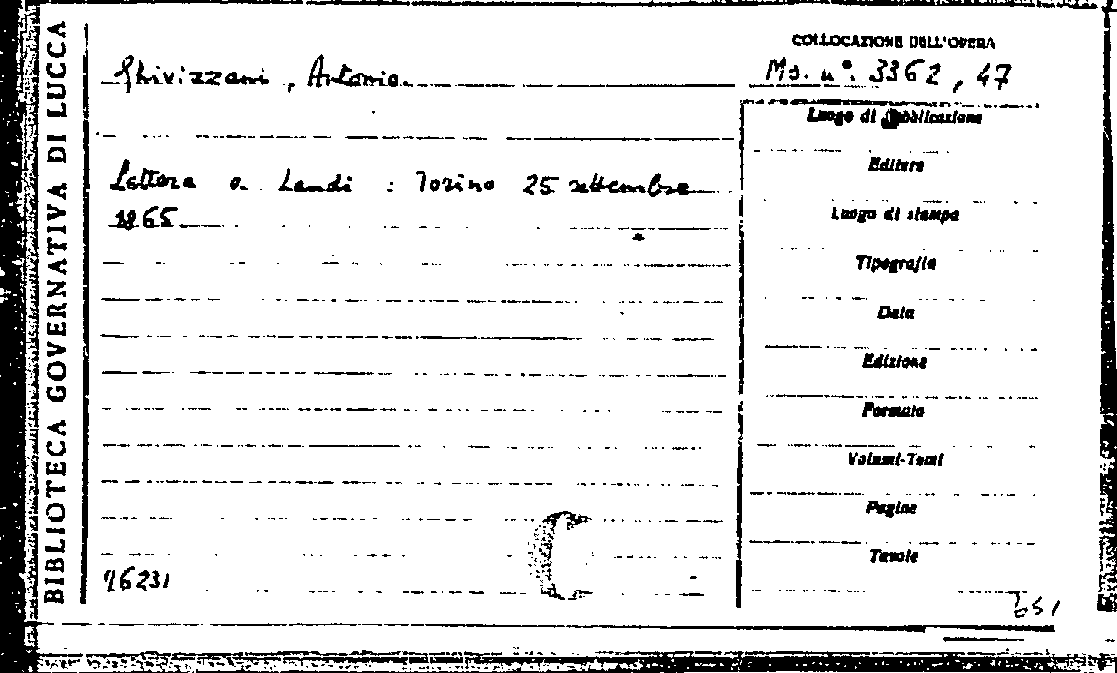 BIBLIOTECA GOVERNATIVA DI LUCCA
Ghivizzani, Antonio.
Lettera a Landi : Torino 25 settembre
1865
COLLOCAZIONE DELL'OPERA
Ms. n°. 3362, 47
Luogo di pubblicazione
Editore
Luogo di stampa
Tipografia
Data
Edizione
Formato
Volumi-Tomi
Pagine
Tavole
96231